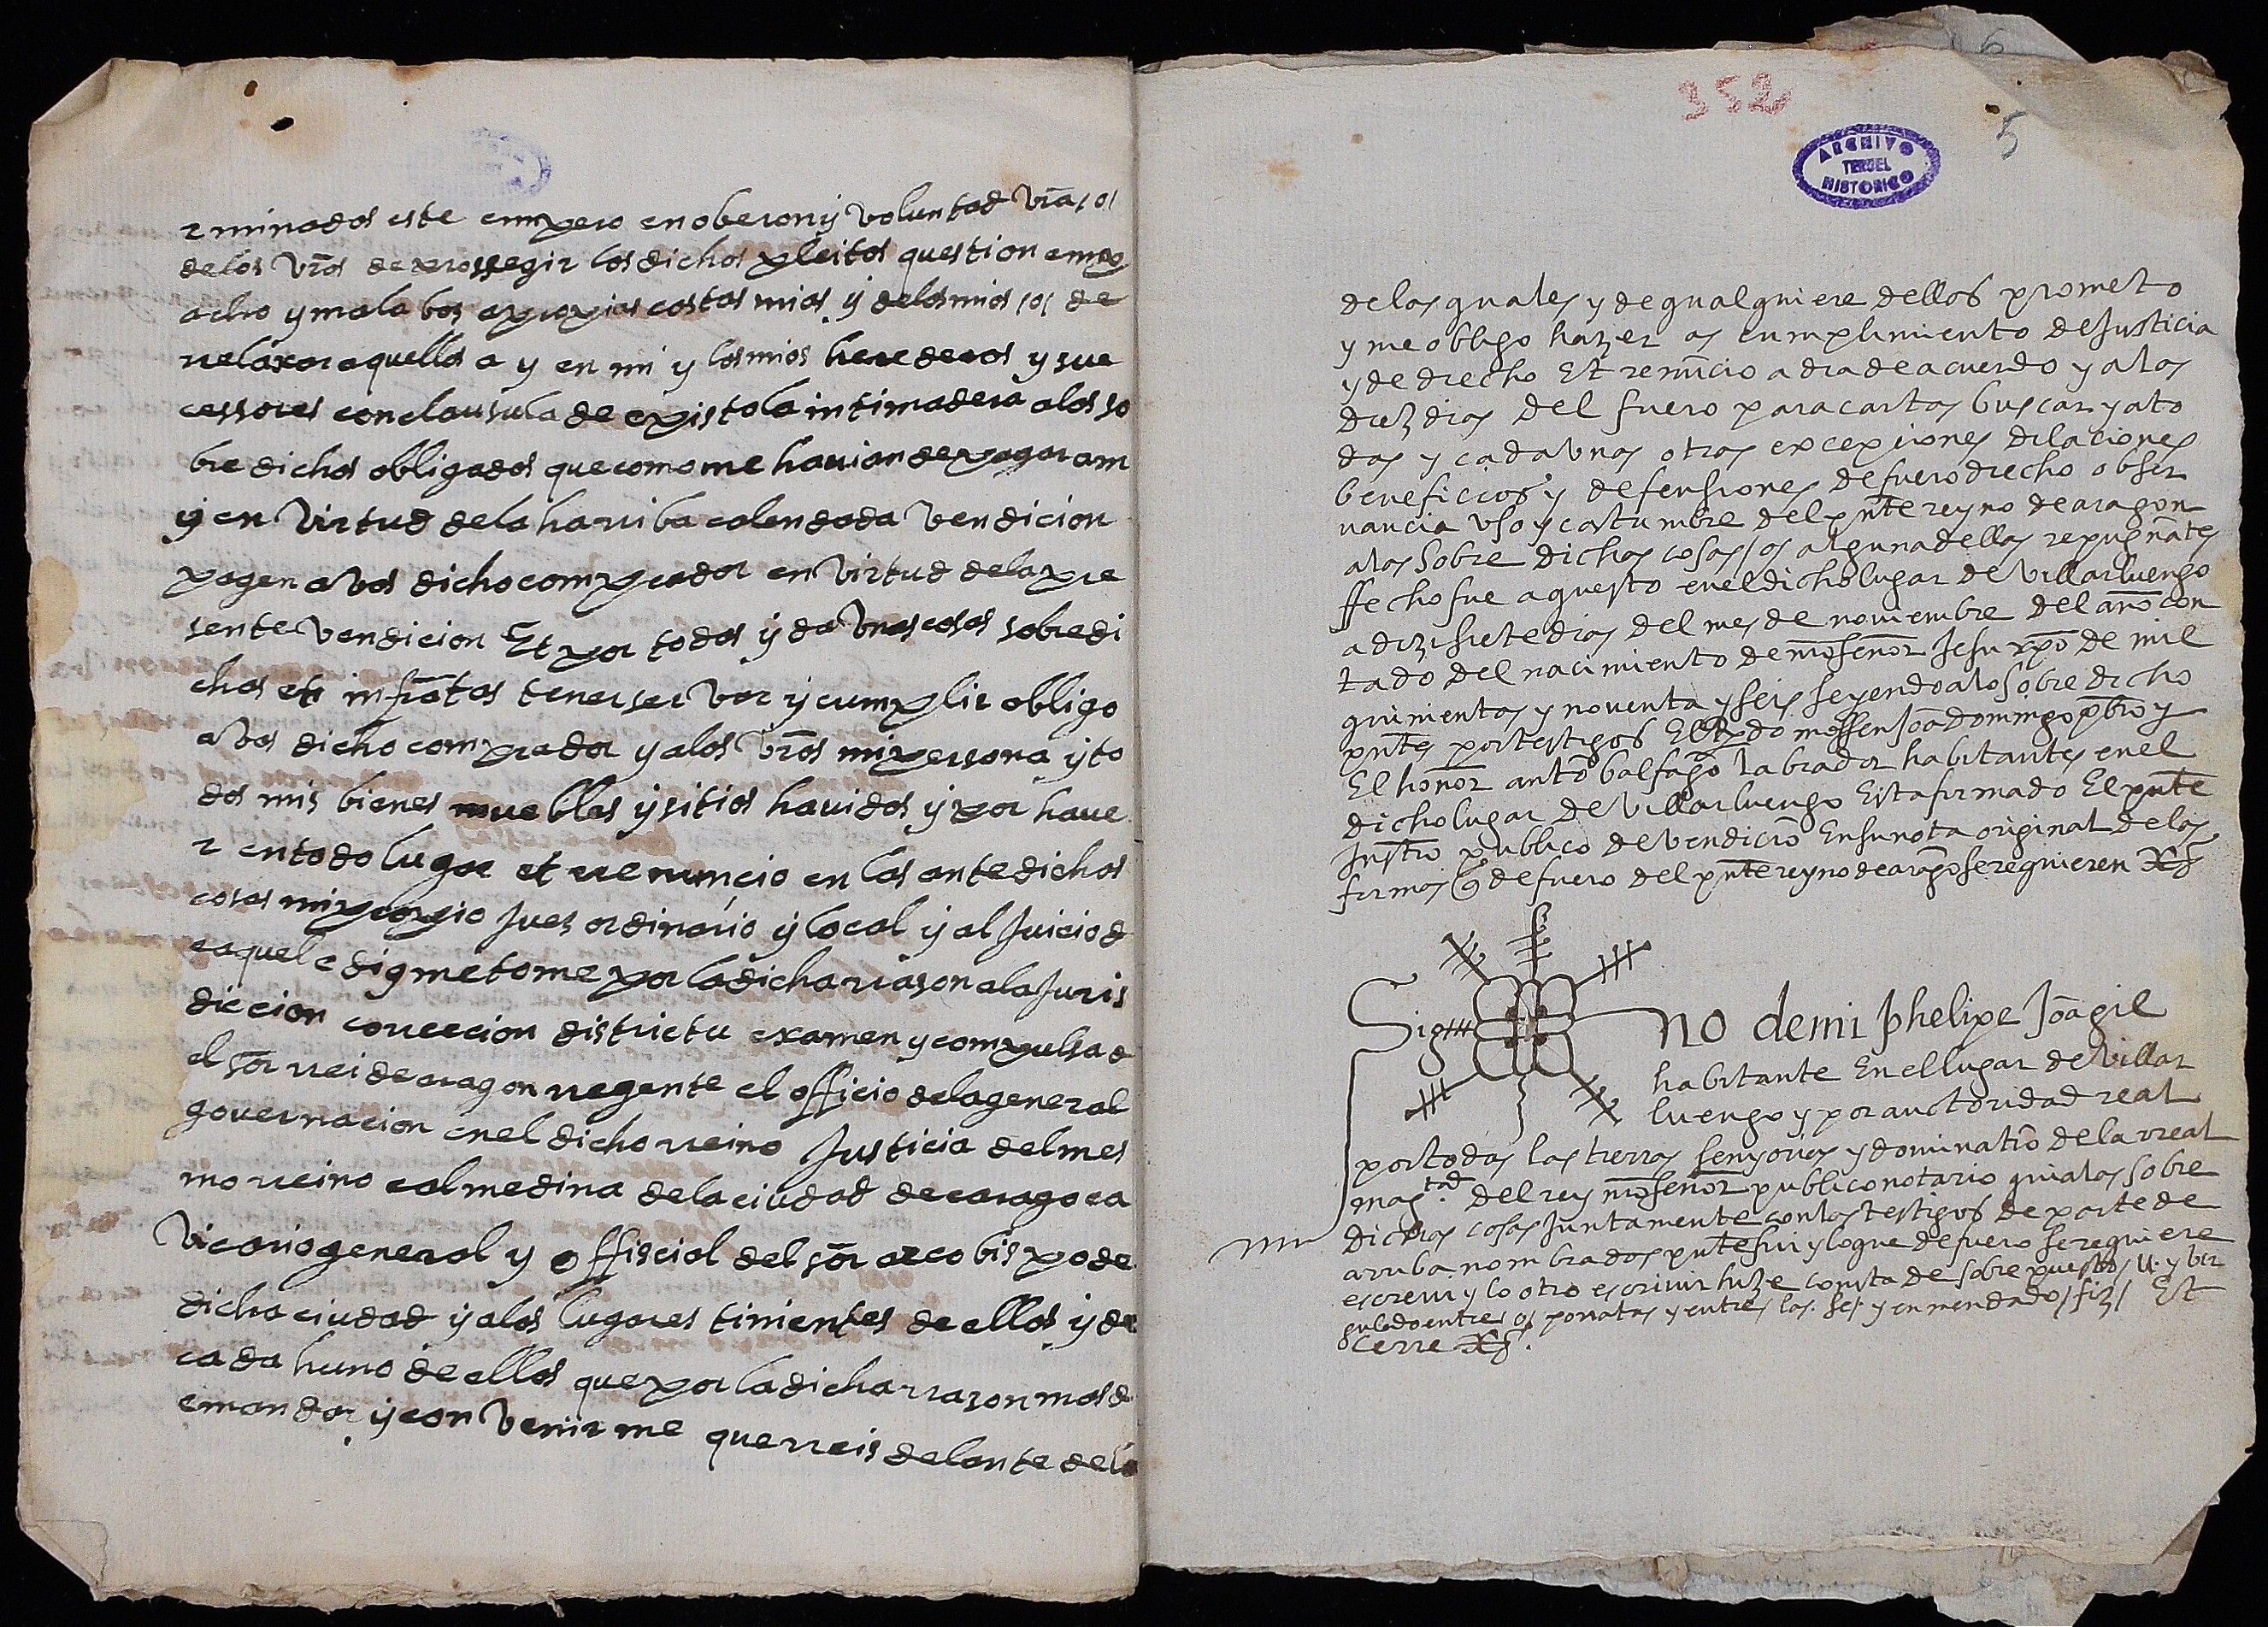 r minados este empero en oberon y voluntad vr̃a /o/
de los vr̃os de prossegir los dichos pleitos question emp
acho y mala bos a propias costas mias y de los mios /o/ de
relaxar aquellos a y en mi y los mios herederos y suc
cessores con clausula de epistola intimadera a los so
bre dichos obligados que como me havian de pagar a m
y en virtud de la harriba calendada vendicion
pagen a vos dicho comprador en virtud de la pre
sente vendicion Et por todas y da unas cosas sobredi
chas et infr̃atas tener servar y cumplir obligo
a vos dicho comprador y a los vr̃os mi persona y to
dos mis bienes muebles y sitios havidos y por have
r en todo lugar et renuncio en las antedichas
cosas mi propio Jues ordinario y local y al Juicio d
e aquel e dig metome por la dicha rrason a la Juris
diccion coreccion districtu examen y compulsa d
el s̃or rei de aragon regente el officio de la general
governacion en el dicho reino Justicia del mes
mo reino calmedina de la ciudad de caragoca
Vicario general y offiscial del s̃or arcobispo de
dicha ciudad y a los lugares tinientes de ellos y de
cada huno de ellos que por la dicha rrason mas d
emandar y con venir me querreis delante de la
352
5
6
ARCHIVO
TERUEL
HISTORICO
de las quales y de qualquiere dellos prometo
y me obligo hazer os cumplimiento de Justicia
y de drecho Et renũcio a dia de acuerdo y a los
diez dias del fuero para cartas buscar y a to
das y cada unas otras excepciones dilaciones
beneficios y defensiones de fuero drecho obser
vancia uso y costumbre del pñte reyno de aragon
a las sobre dichas cosas /o/ alguna dellas repugnãtes
ffecho fue aquesto en el dicho lugar de Villarluengo
a dizisiete dias del mes de noviembre del año con
tado del nacimiento de nr̃o señor Jesu xp̃o de mil
quinientos y noventa y seis seyendo a lo sobre dicho
pñtes por testigos El Rdo mossen Joã domingo pb̃ro y
El honor antõ balfagõ labrador habitantes en el
dicho lugar de Villarluengo Esta firmado El pñte
Instr̃o publico de vendiciõ En su nota original de las
firmas q̃ de fuero del pñte reyno de aragõ se requieren
Sig no de mi phelipe Joã gil
habitante En el lugar de Villar
luengo y por auctoridad real
por todas las tierras senyorias y dominatiõ de la rreal
magtad del rey nr̃o señor publico notario qui a las sobre
dichas cosas Juntamente con los testigos de parte de
arriba nombrados pñte fui y lo que de fuero se requiere
escrevi y lo otro escrivir hize consta de sobre puestos u. y vir
gulado entre o/ porratas y entre/ las. se/ y enmendado/ fiz/ Et
cerre